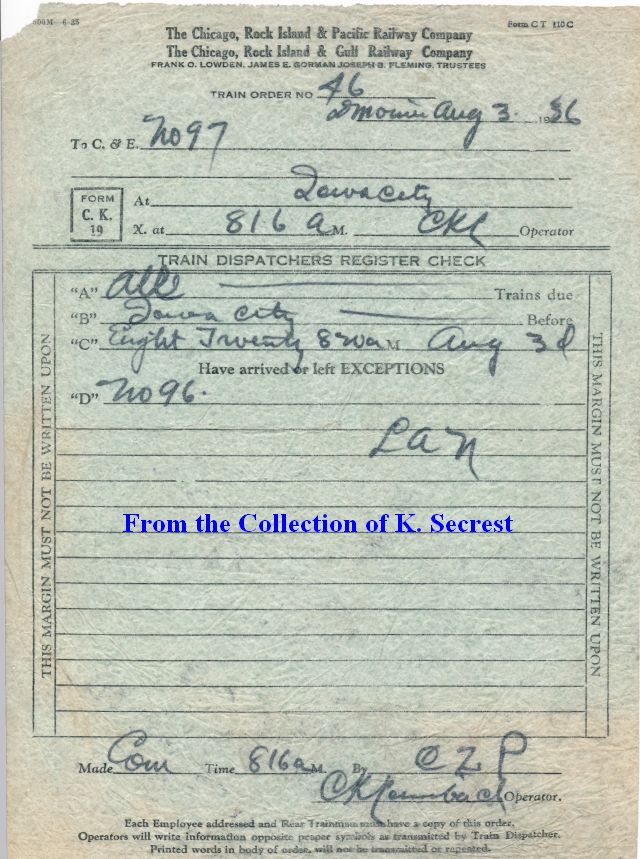 500M 6-35 Form C T 110 C
The Chicago, Rock Island & Pacific Railway Company
The Chicago, Rock Island & Gulf Railway Company
FRANK O. LOWDEN, JAMES E. GORMAN JOSEPH B. FLEMING, TRUSTEES
TRAIN ORDER NO 46
Aug 3 1936
To C. & E. No 97
FORM C. K. 19
At Iowa City
X. at 816 a M. CKR Operator
TRAIN DISPATCHERS REGISTER CHECK
"A" All Trains due
"B" Iowa City Before
"C" Eight Twenty 820a M Aug 3d
Have arrived or left EXCEPTIONS
"D" No 96.
LAN
From the Collection of K. Secrest
THIS MARGIN MUST NOT BE WRITTEN UPON
THIS MARGIN MUST NOT BE WRITTEN UPON
Made Com Time 816a M. By
Operator.
Each Employee addressed and Rear Trainman must have a copy of this order.
Operators will write information opposite proper symbols as transmitted by Train Dispatcher.
Printed words in body of order, will not be transmitted or repeated.